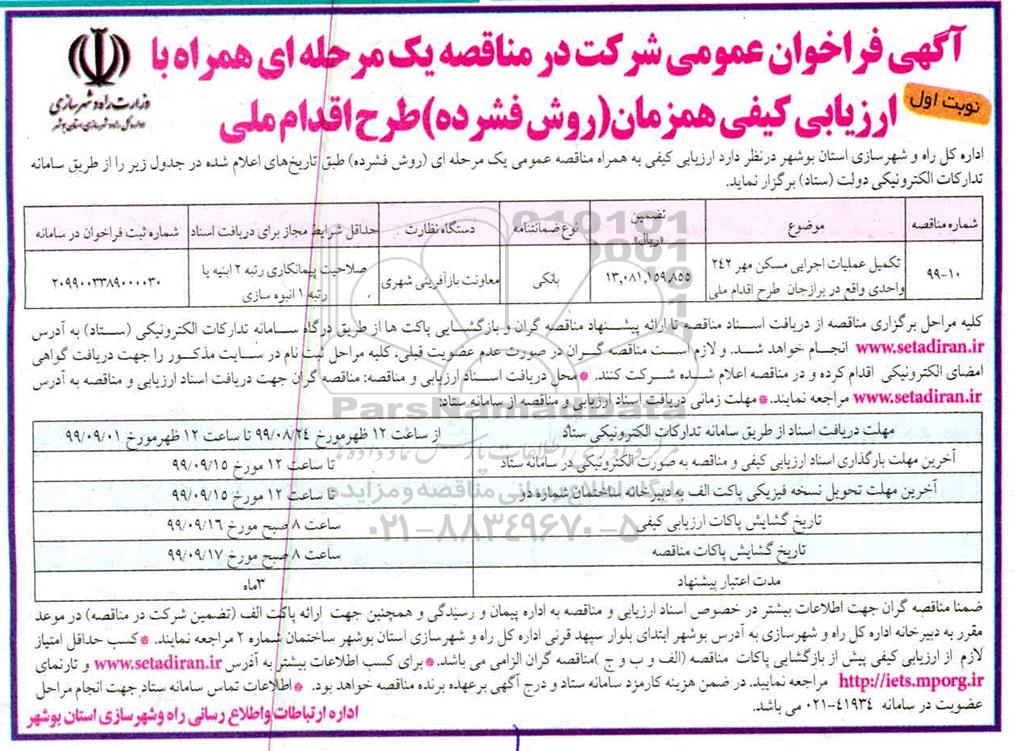 آگهی فراخوان عمومی شرکت در مناقصه یک مرحله ای همراه با
ارزیابی کیفی همزمان(روش فشرده)طرح اقدام ملی
نوبت اول
وزارت راه و شهرسازی
اداره کل راه و شهرسازی استان بوشهر
اداره کل راه و شهرسازی استان بوشهر درنظر دارد ارزیابی کیفی به همراه مناقصه عمومی یک مرحله ای (روش فشرده) طبق تاریخ‌های اعلام شده در جدول زیر را از طریق سامانه
تدارکات الکترونیکی دولت (ستاد) برگزار نماید.
شماره مناقصه موضوع تضمین (ریال) نوع ضمانتنامه دستگاه نظارت حداقل شرایط مجاز برای دریافت اسناد شماره ثبت فراخوان در سامانه
۹۹-۱۰ تکمیل عملیات اجرایی مسکن مهر ۲۴۲ واحدی واقع در برازجان طرح اقدام ملی ۱۳,۰۸۱,۱۵۹,۸۵۵ بانکی معاونت بازآفرینی شهری صلاحیت پیمانکاری رتبه ۲ ابنیه یا رتبه ۱ انبوه سازی ۲۰۹۹۰۰۳۳۸۹۰۰۰۰۳۰
کلیه مراحل برگزاری مناقصه از دریافت اسناد مناقصه تا ارائه پیشنهاد مناقصه گران و بازگشایی پاکت ها از طریق درگاه سامانه تدارکات الکترونیکی (ستاد) به آدرس
www.setadiran.ir انجام خواهد شد. و لازم است مناقصه گران در صورت عدم عضویت قبلی، کلیه مراحل ثبت نام در سایت مذکور را جهت دریافت گواهی
امضای الکترونیکی اقدام کرده و در مناقصه اعلام شده شرکت کنند. *محل دریافت اسناد ارزیابی و مناقصه: مناقصه گران جهت دریافت اسناد ارزیابی و مناقصه به آدرس
www.setadiran.ir مراجعه نمایند.*مهلت زمانی دریافت اسناد ارزیابی و مناقصه از سامانه ستاد:
ParsNamadData
مهلت دریافت اسناد از طریق سامانه تدارکات الکترونیکی ستاد از ساعت ۱۲ ظهرمورخ ۹۹/۰۸/۲۴ تا ساعت ۱۲ ظهرمورخ ۹۹/۰۹/۰۱
آخرین مهلت بارگذاری اسناد ارزیابی کیفی و مناقصه به صورت الکترونیکی در سامانه ستاد تا ساعت ۱۲ مورخ ۹۹/۰۹/۱۵
آخرین مهلت تحویل نسخه فیزیکی پاکت الف به دبیرخانه ساختمان شماره دو تا ساعت ۱۲ مورخ ۹۹/۰۹/۱۵
پایگاه اطلاع رسانی مناقصه و مزایده
تاریخ گشایش پاکات ارزیابی کیفی ساعت ۸ صبح مورخ ۹۹/۰۹/۱۶
۰۲۱-۸۸۳۴۹۶۷۰-۵
تاریخ گشایش پاکات مناقصه ساعت ۸ صبح مورخ ۹۹/۰۹/۱۷
مدت اعتبار پیشنهاد ۳ماه
ضمنا مناقصه گران جهت اطلاعات بیشتر در خصوص اسناد ارزیابی و مناقصه به اداره پیمان و رسیدگی و همچنین جهت ارائه پاکت الف (تضمین شرکت در مناقصه) در موعد
مقرر به دبیرخانه اداره کل راه و شهرسازی به آدرس بوشهر ابتدای بلوار سپهد قرنی اداره کل راه و شهرسازی استان بوشهر ساختمان شماره ۲ مراجعه نمایند. *کسب حداقل امتیاز
لازم از ارزیابی کیفی پیش از بازگشایی پاکات مناقصه (الف و ب و ج )مناقصه گران الزامی می باشد.*برای کسب اطلاعات بیشتر به آدرس www.setadiran.ir و تارنمای
http://iets.mporg.ir مراجعه نمایید. در ضمن هزینه کارمزد سامانه ستاد و درج آگهی برعهده برنده مناقصه خواهد بود. *اطلاعات تماس سامانه ستاد جهت انجام مراحل
عضویت در سامانه ۴۱۹۳۴-۰۲۱ می باشد.
اداره ارتباطات واطلاع رسانی راه وشهرسازی استان بوشهر